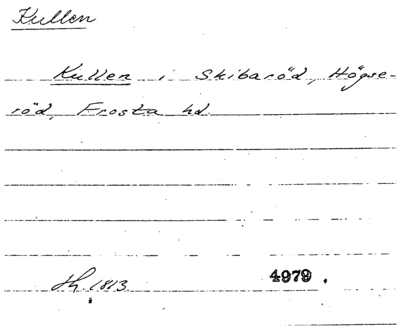 Kullen
Kullen i Skibaröd, Högse-
röd, Frosta hd.
Jh. 1813. 4979.